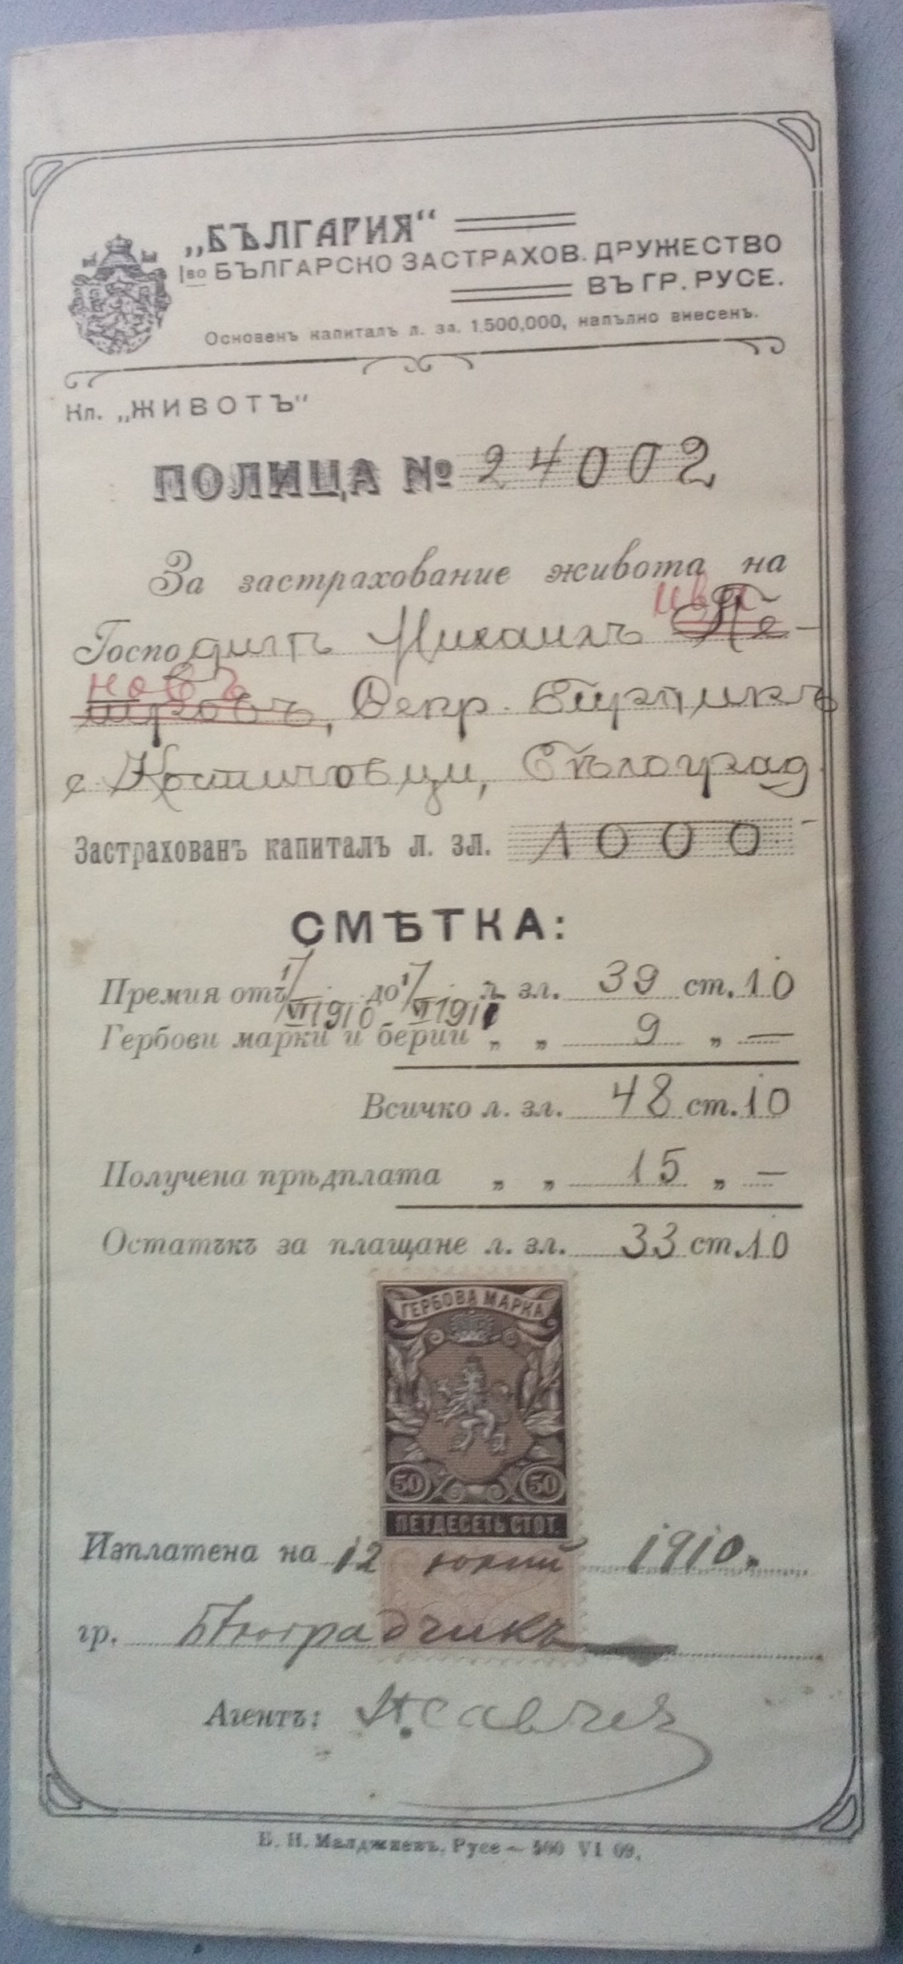 „БЪЛГАРИЯ“
Iво БЪЛГАРСКО ЗАСТРАХОВ. ДРУЖЕСТВО
ВЪ ГР. РУСЕ.
Основенъ капиталъ л. зл. 1.500,000, напълно внесенъ.
Кл. „ЖИВОТЪ“
ПОЛИЦА № 24002
За застрахование живота на
Ива
Господинъ Михаилъ Пе-
новъ
тровъ, Секр. Бирникъ
с Костичовци, Бѣлоград.
Застрахованъ капиталъ л. зл. 1000.-
СМѢТКА:
Премия отъ 1/VI 1910 до 1/VI 1911 л. зл. 39 ст. 10
Гербови марки и берии „ „ 9 „ —
Всичко л. зл. 48 ст. 10
Получена прѣдплата „ „ 15 „ —
Остатъкъ за плащане л. зл. 33 ст. 10
ГЕРБОВА МАРКА
50 50
ПЕТДЕСЕТЬ СТОТ.
Изплатена на 12 юний 1910.
гр. Бѣлоградчикъ
Агентъ:
Б. Н. Малджиевъ, Русе — 500 VI 09.